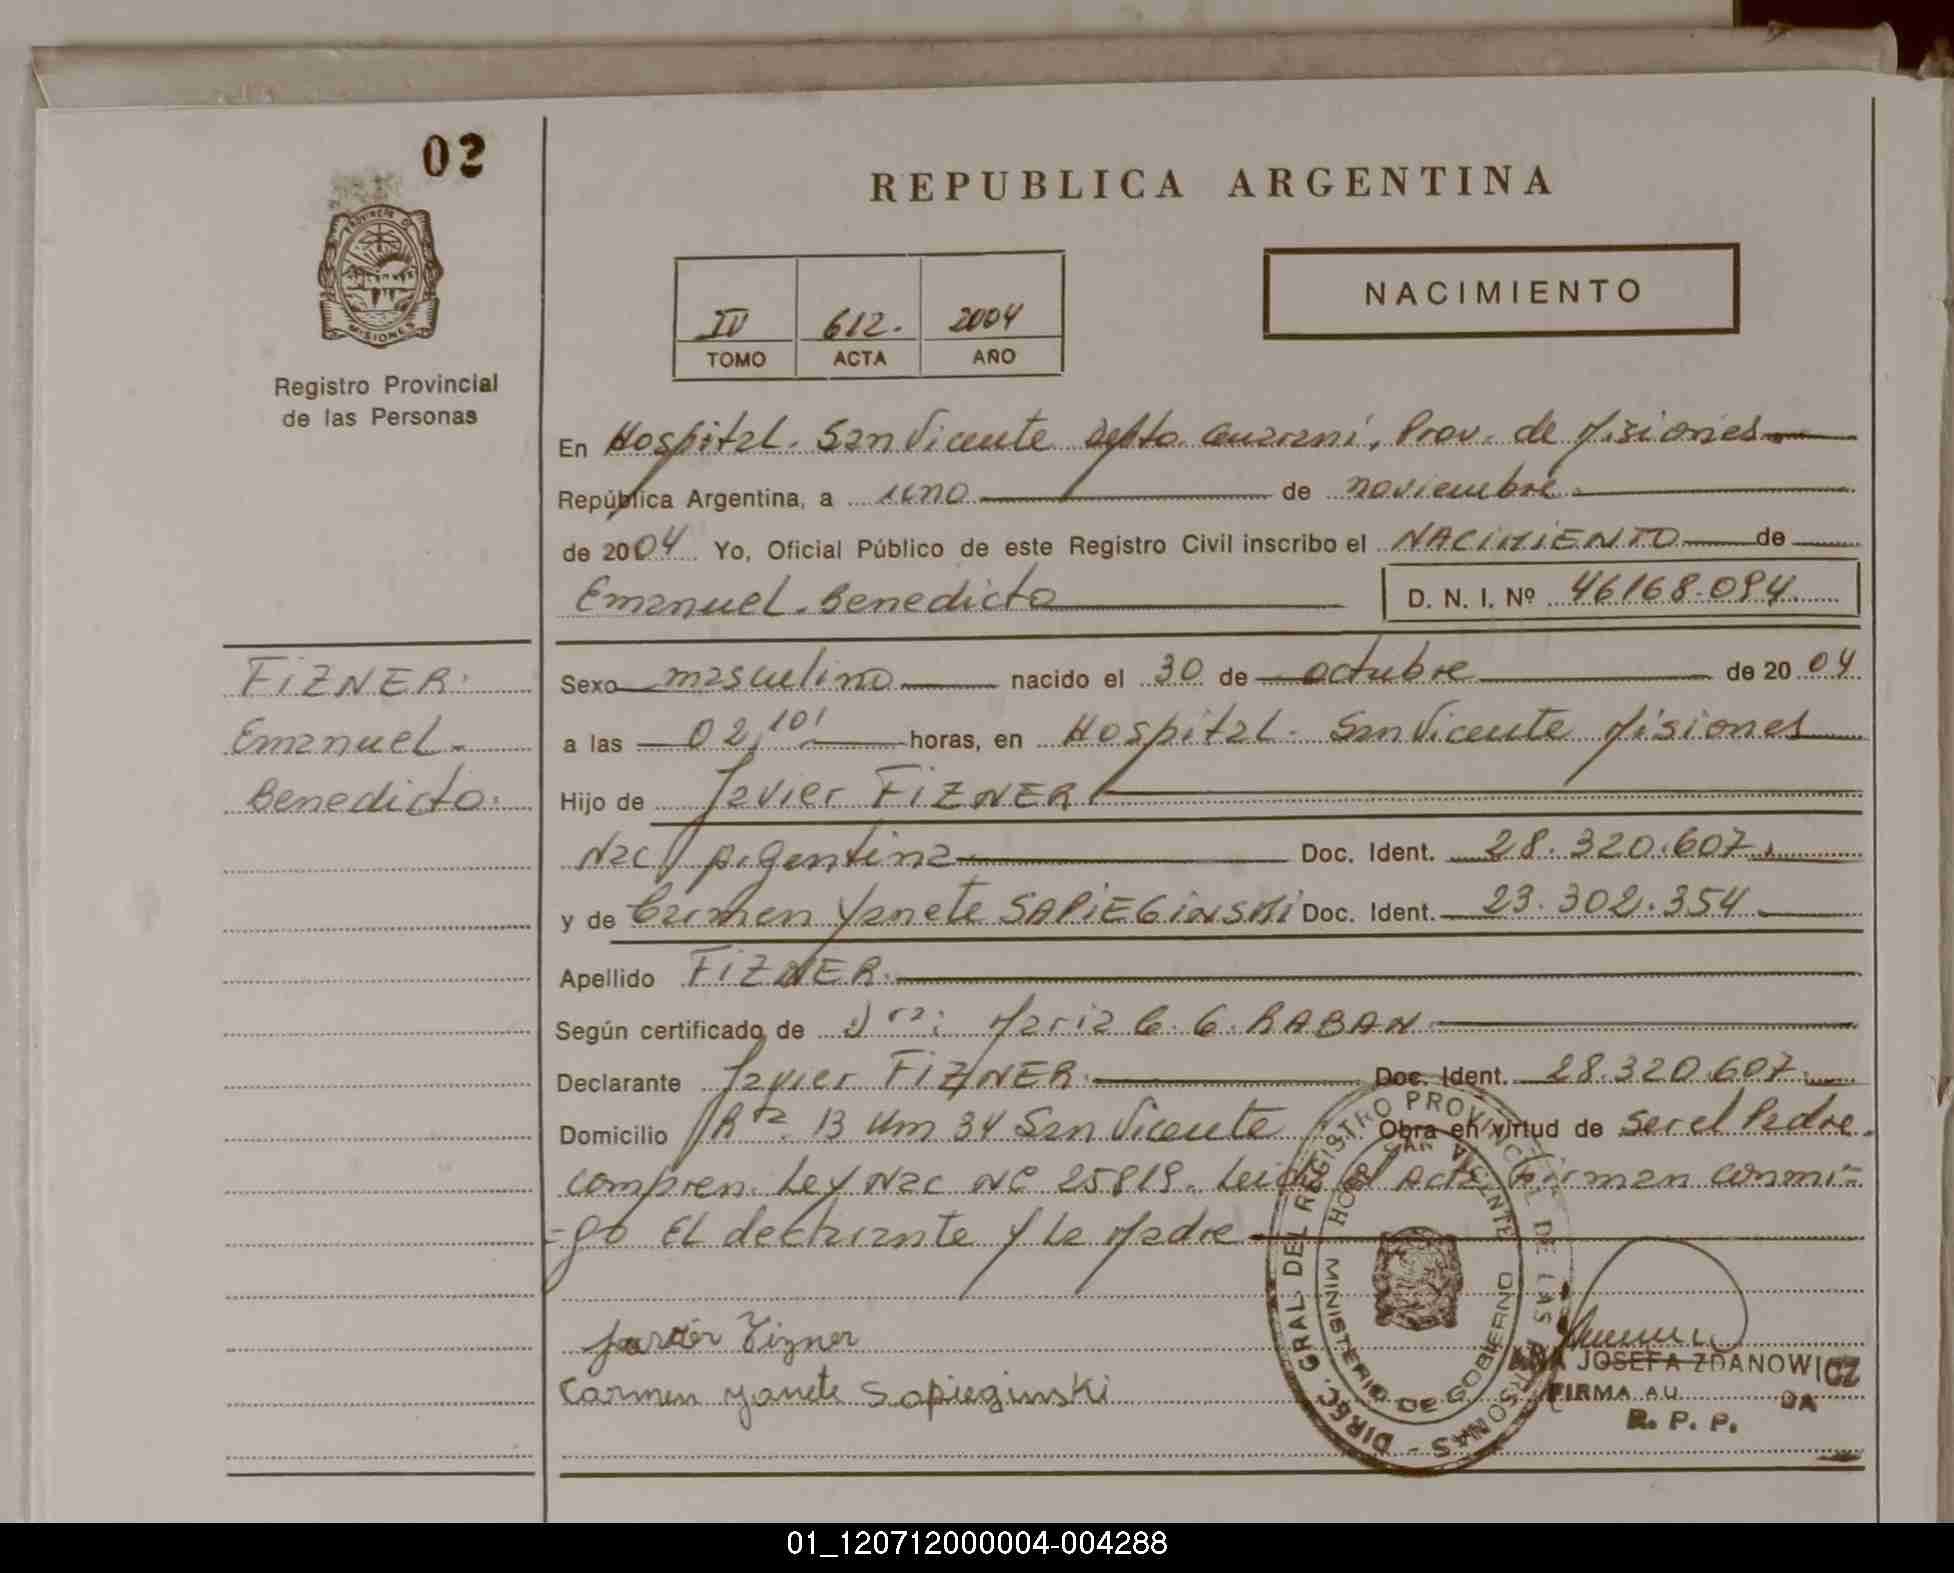 02
PROVINCIA DE
MISIONES
Registro Provincial
de las Personas
REPUBLICA ARGENTINA
IV 612. 2004
TOMO ACTA AÑO
NACIMIENTO
En Hospital. San Vicente Depto Guaraní, Prov. de Misiones
República Argentina, a uno de noviembre
de 2004 Yo, Oficial Público de este Registro Civil inscribo el NACIMIENTO de
Emanuel Benedicto D. N. I. Nº 46168.094
FIZNER.
Emanuel
Benedicto.
Sexo masculino nacido el 30 de octubre de 2004
a las 02,10' horas, en Hospital. San Vicente Misiones
Hijo de Javier FIZNER
Nac/ Argentina Doc. Ident. 28.320.607.
y de Carmen Yanete SAPIEGINSKI Doc. Ident. 23.302.354
Apellido FIZNER.
Según certificado de Dra: Maria C. G. RABAN
Declarante Javier FIZNER Doc. Ident. 28.320.607.
Domicilio Rta. 13 Km 34 San Vicente Obra en virtud de ser el Padre.
Compren. Ley Nac Nº 25819. Leida el Acta Firman conmi=
=go El declarante y la Madre
Javier Fizner
Carmen yanete Sapieginski
DIREC. GRAL. DEL REGISTRO PROVINCIAL DE LAS PERSONAS -
HOSP SAN VICENTE
MINISTERIO DE GOBIERNO
ANA JOSEFA ZDANOWICZ
FIRMA AU DA
R. P. P.
01_120712000004-004288